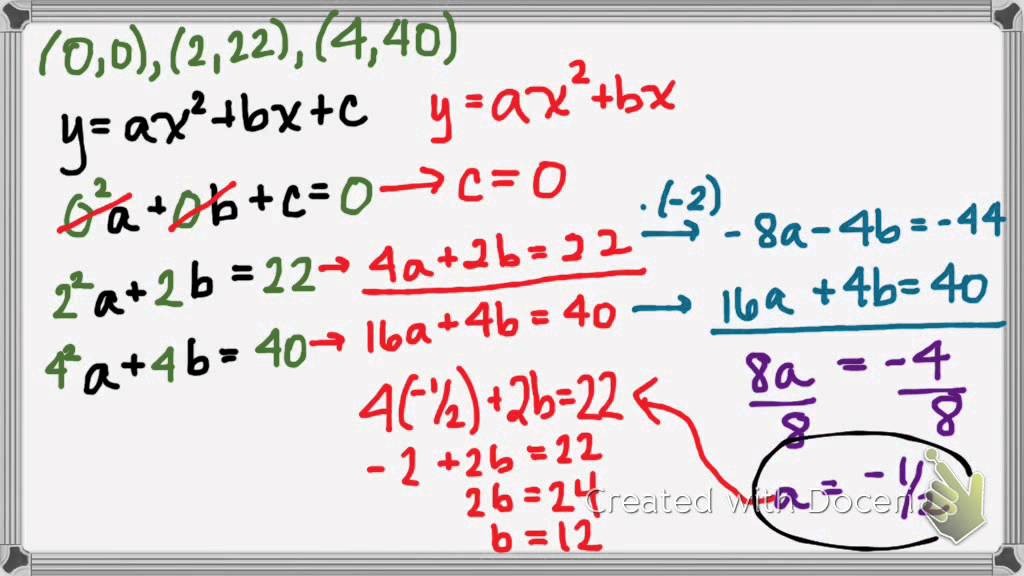 (0,0), (2,22), (4,40)
y = ax² + bx + c
y = ax² + bx
0²a + 0b + c = 0 → c = 0
2²a + 2b = 22 → 4a + 2b = 22 → · (-2) - 8a - 4b = -44
4²a + 4b = 40 → 16a + 4b = 40 → 16a + 4b = 40
8a/8 = -4/8
a = -1/2
4(-1/2) + 2b = 22
-2 + 2b = 22
2b = 24
b = 12
Created with Doceri